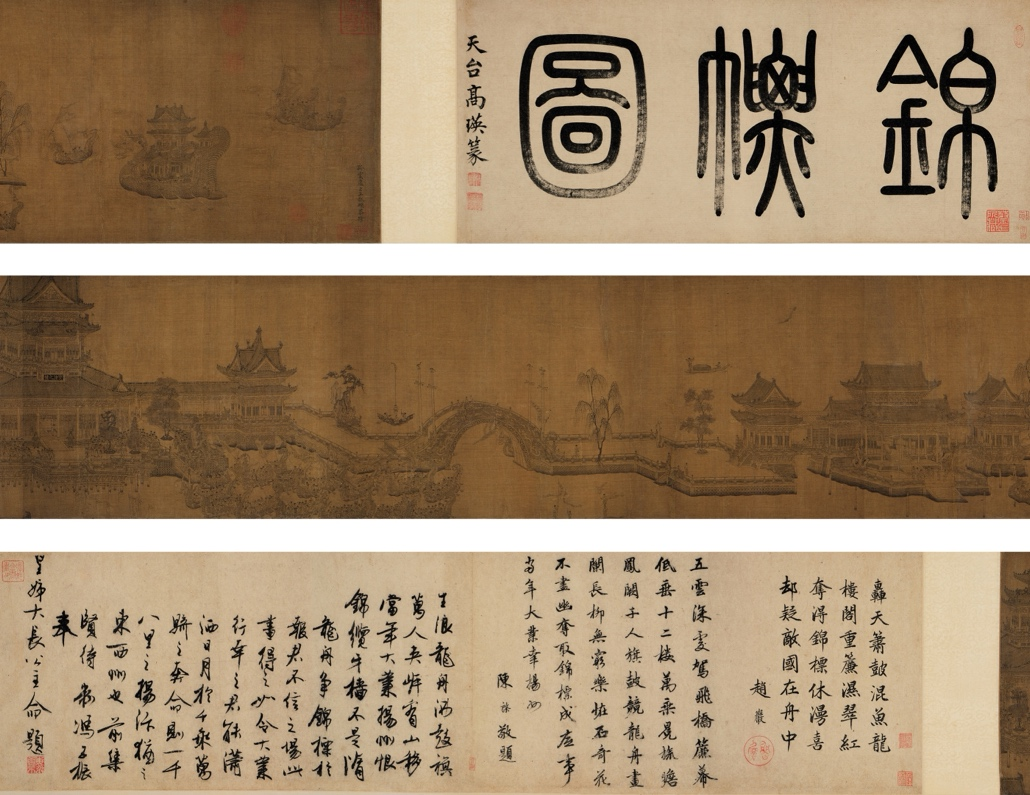 錦幖圖
天台高瑛篆
轟天簫鼓混魚龍
樓閣重簾濕翠紅
奪得錦標休謾喜
却疑敵國在舟中
趙巖
五雲深處駕飛橋簾幕
低垂十二樓萬乘冕旒瞻
鳳闕千人旗鼓競龍舟畫
闌長柳無窮樂怪石奇花
不盡幽奪取錦標成底事
當年大業幸揚州
陳 敬題
生浪龍舟兩鼓旗
萬人夾岸看山移
當年大業揚州恨
錦纜牙檣不是隋
龍舟爭錦標於
報君不信之場此
畫得之必令大業
行幸之君能瀟
洒日月於千乘萬
騎之奉命則一千
八里之揚汴猶之
東西州也前集
賢待制馮子振
奉
皇姊大長公主命題